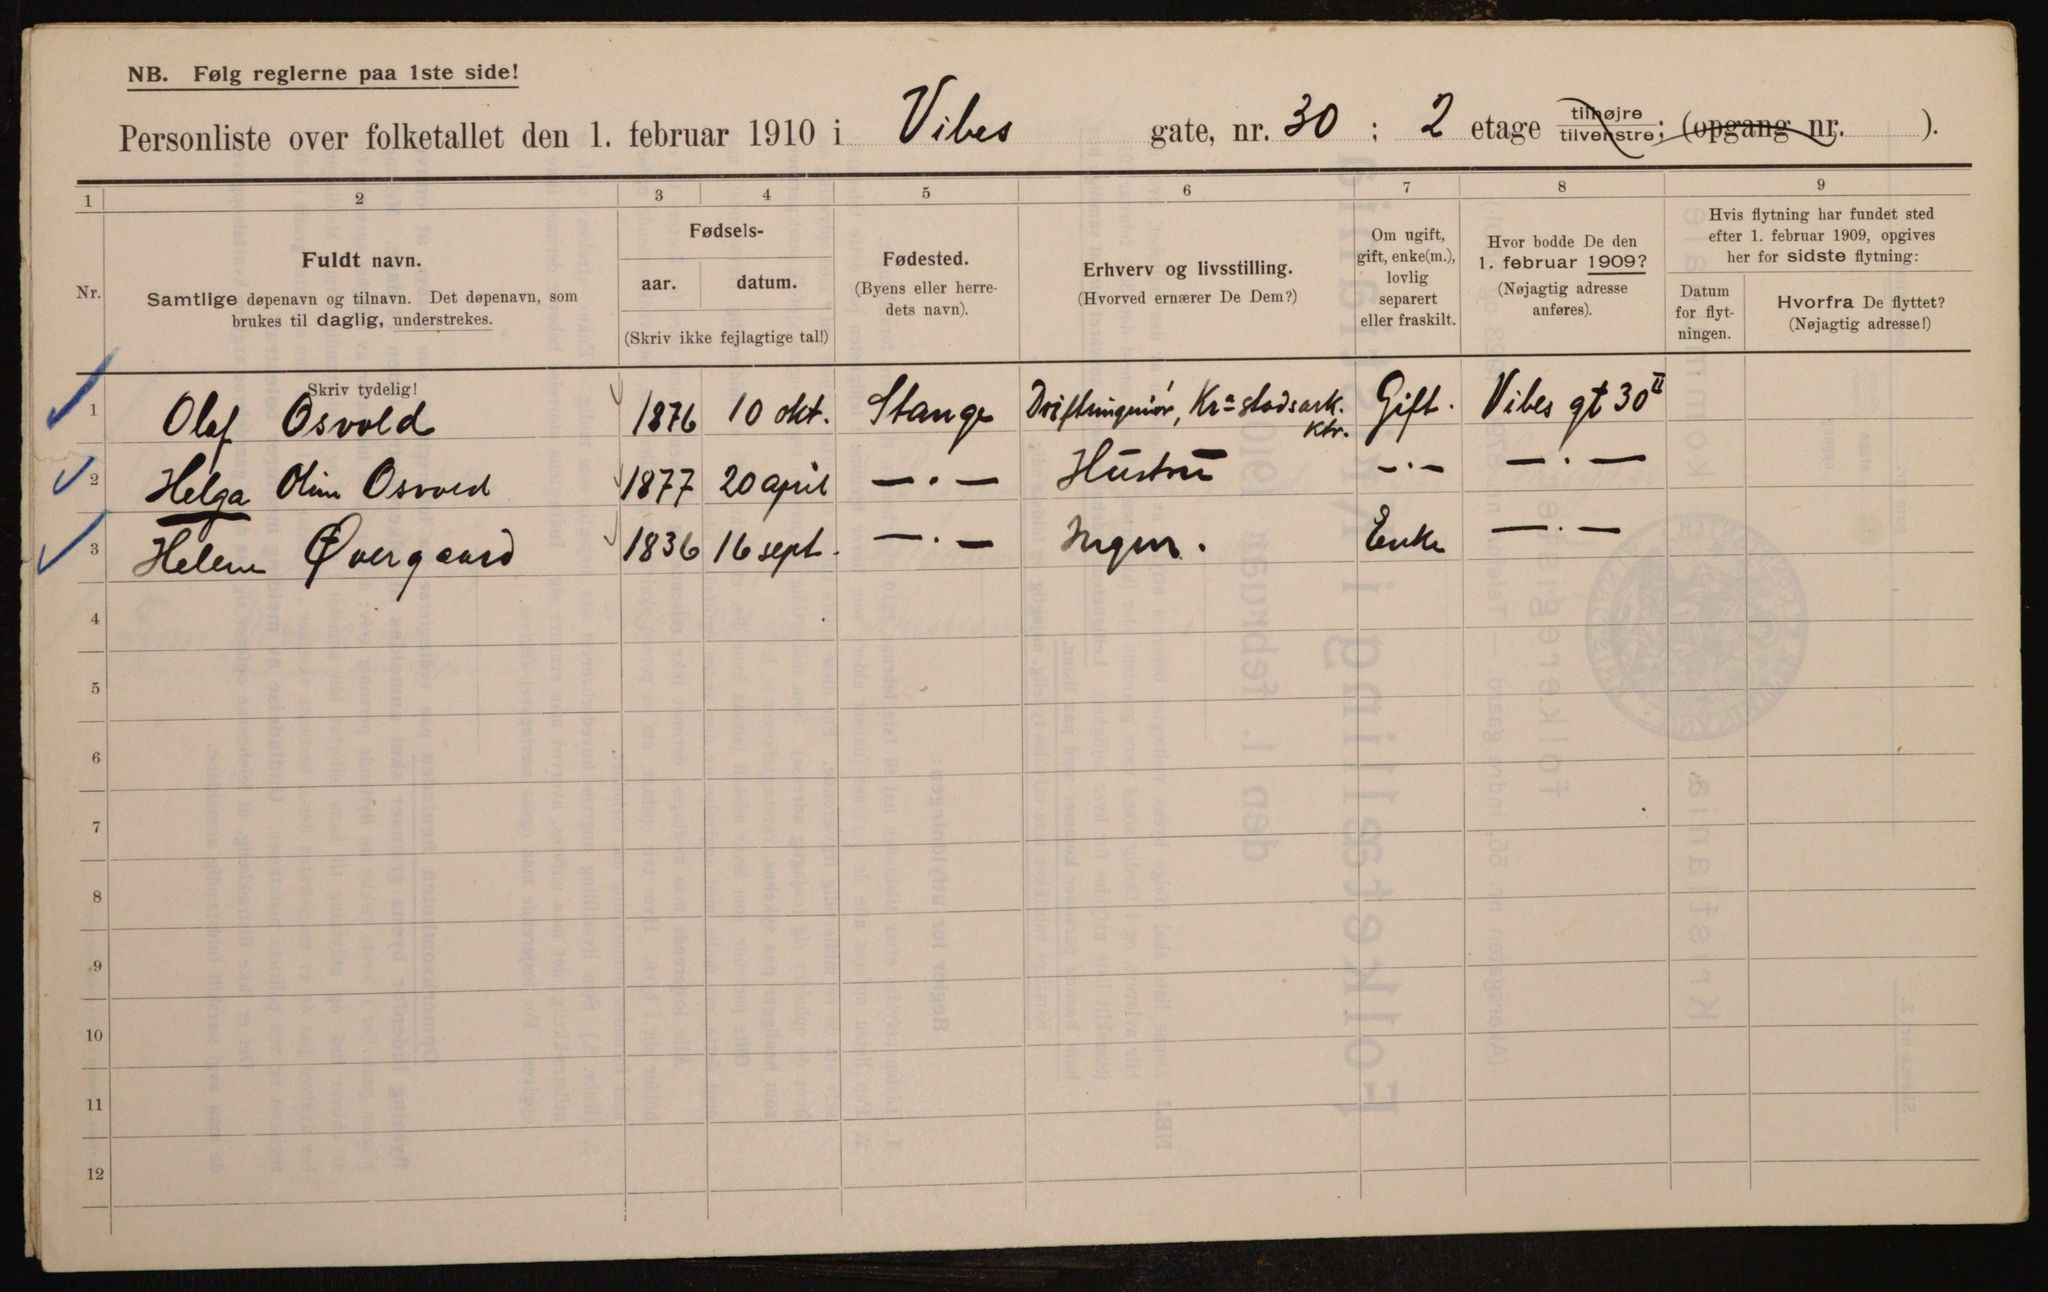 NB. Følg reglerne paa 1ste side!
Personliste over folketallet den 1. februar 1910 i Vibes gate, nr. 30 ; 2 etage tilhøjre tilvenstre; (opgang nr. ).
1 2 3 4 5 6 7 8 9
Nr.
Fuldt navn.
Samtlige døpenavn og tilnavn. Det døpenavn, som
brukes til daglig, understrekes.
Skriv tydelig!
Fødsels-
aar. datum.
(Skriv ikke fejlagtige tal!)
Fødested.
(Byens eller herre-
dets navn).
Erhverv og livsstilling.
(Hvorved ernærer De Dem?)
Om ugift,
gift, enke(m.),
lovlig
separert
eller fraskilt.
Hvor bodde De den
1. februar 1909?
(Nøjagtig adresse
anføres).
Hvis flytning har fundet sted
efter 1. februar 1909, opgives
her for sidste flytning:
Datum
for flyt-
ningen.
Hvorfra De flyttet?
(Nøjagtig adresse!)
1 Olaf Osvold 1876 10 okt. Stange Driftsingeniør, Kra stadsark. Gift. Vibes gt 30 II
ktr.
2 Helga Osvold 1877 20 april —·— Hustru —·— —·—
3 Helene Øvergaard 1836 16 sept. —·— Ingen. Enke —·—
4
5
6
7
8
9
10
11
12